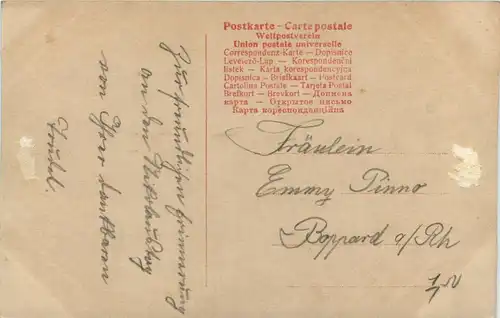 Postkarte - Carte postale
Weltpostverein
Union postale universelle
Correspondenz-Karte — Dopisnice
Levelező-Lap — Korespondenční
listek — Karta korespondencyjna
Dopisnica — Briefkaart — Postcard
Cartolina Postale — Tarjeta Postal
Brefkort — Brevkort — Дописна
карта — Открытое письмо
Карта кореспонденційна
Fräulein
Emmy Pinno
Boppard a/Rh
Zur freundlichen Erinnerung
an den Nikolaustag
von Ihrer dankbaren
Trudel.